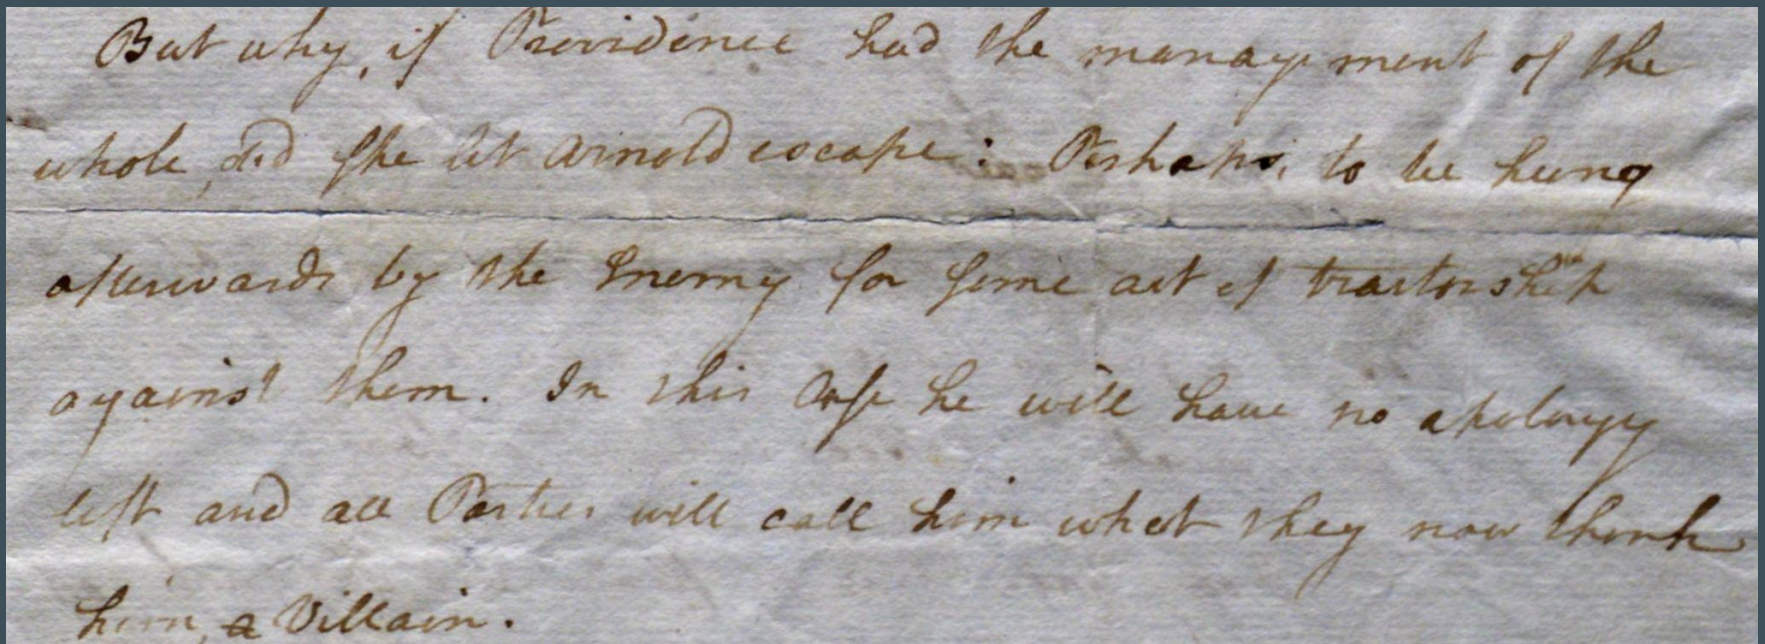 But why, if Providence had the management of the
whole, did she let Arnold escape: Perhaps, to be hung
afterwards by the Enemy for some act of traitorship
against them. In this Case he will have no apology
left and all Parties will call him what they now think
him, a Villain.